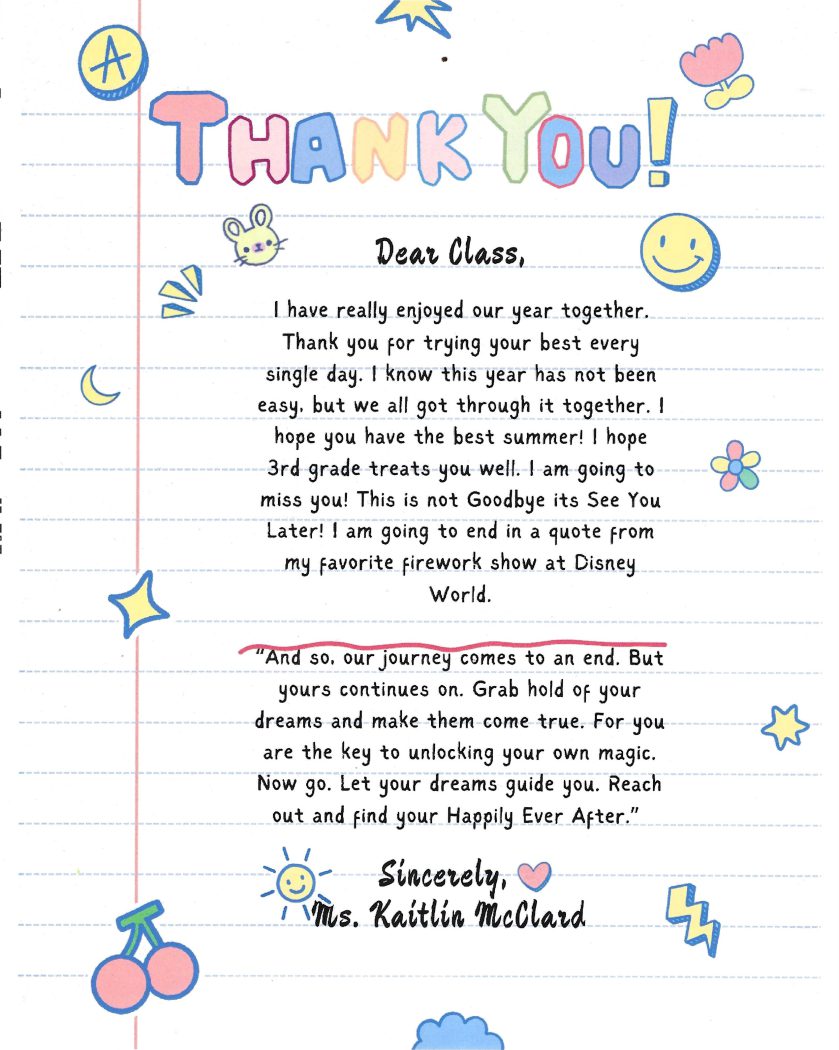 A
THANK YOU!
Dear Class,
I have really enjoyed our year together.
Thank you for trying your best every
single day. I know this year has not been
easy, but we all got through it together. I
hope you have the best summer! I hope
3rd grade treats you well. I am going to
miss you! This is not Goodbye its See You
Later! I am going to end in a quote from
my favorite firework show at Disney
World.
"And so, our journey comes to an end. But
yours continues on. Grab hold of your
dreams and make them come true. For you
are the key to unlocking your own magic.
Now go. Let your dreams guide you. Reach
out and find your Happily Ever After."
Sincerely,
Ms. Kaitlin McClard